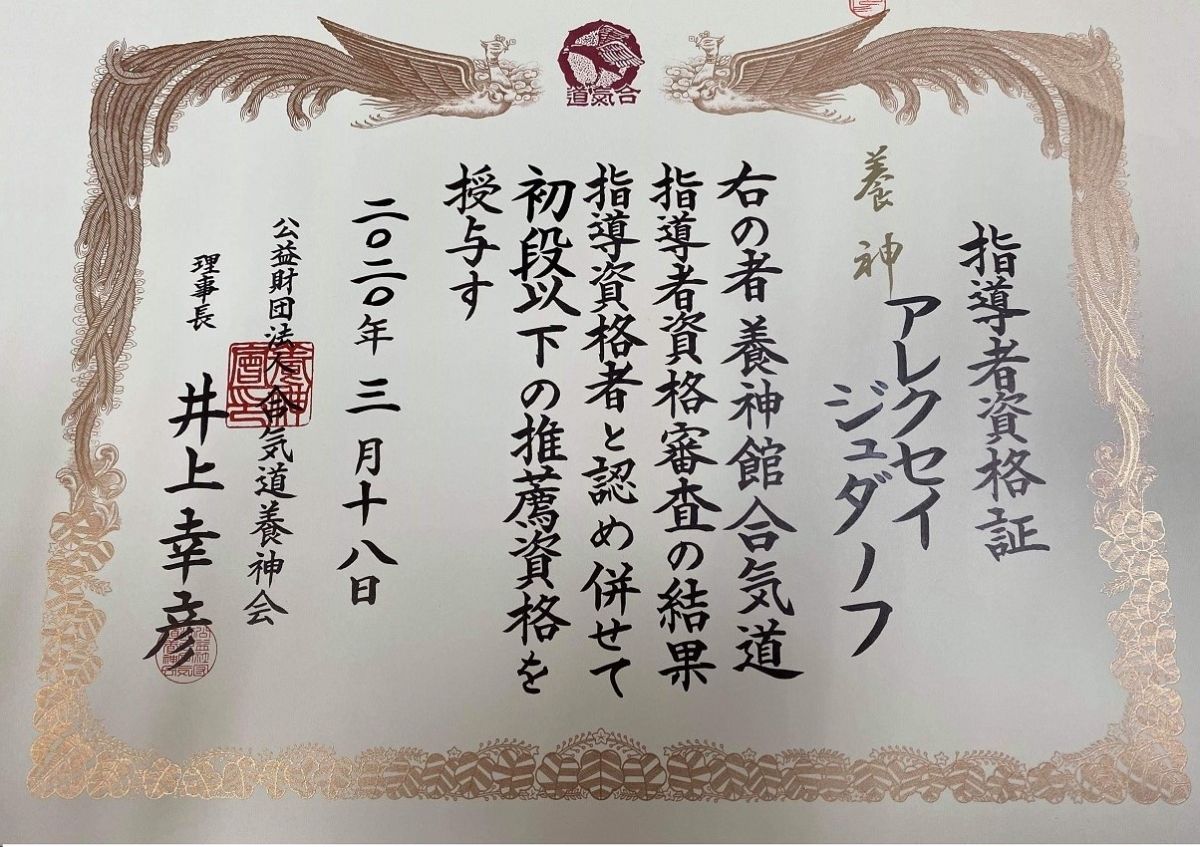 合氣道
指導者資格証
養神
アレクセイ
ジュダノフ
右の者養神館合気道
指導者資格審査の結果
指導資格者と認め併せて
初段以下の推薦資格を
授与す
二〇二〇年三月十八日
公益財団法人合気道養神会
理事長 井上幸彦